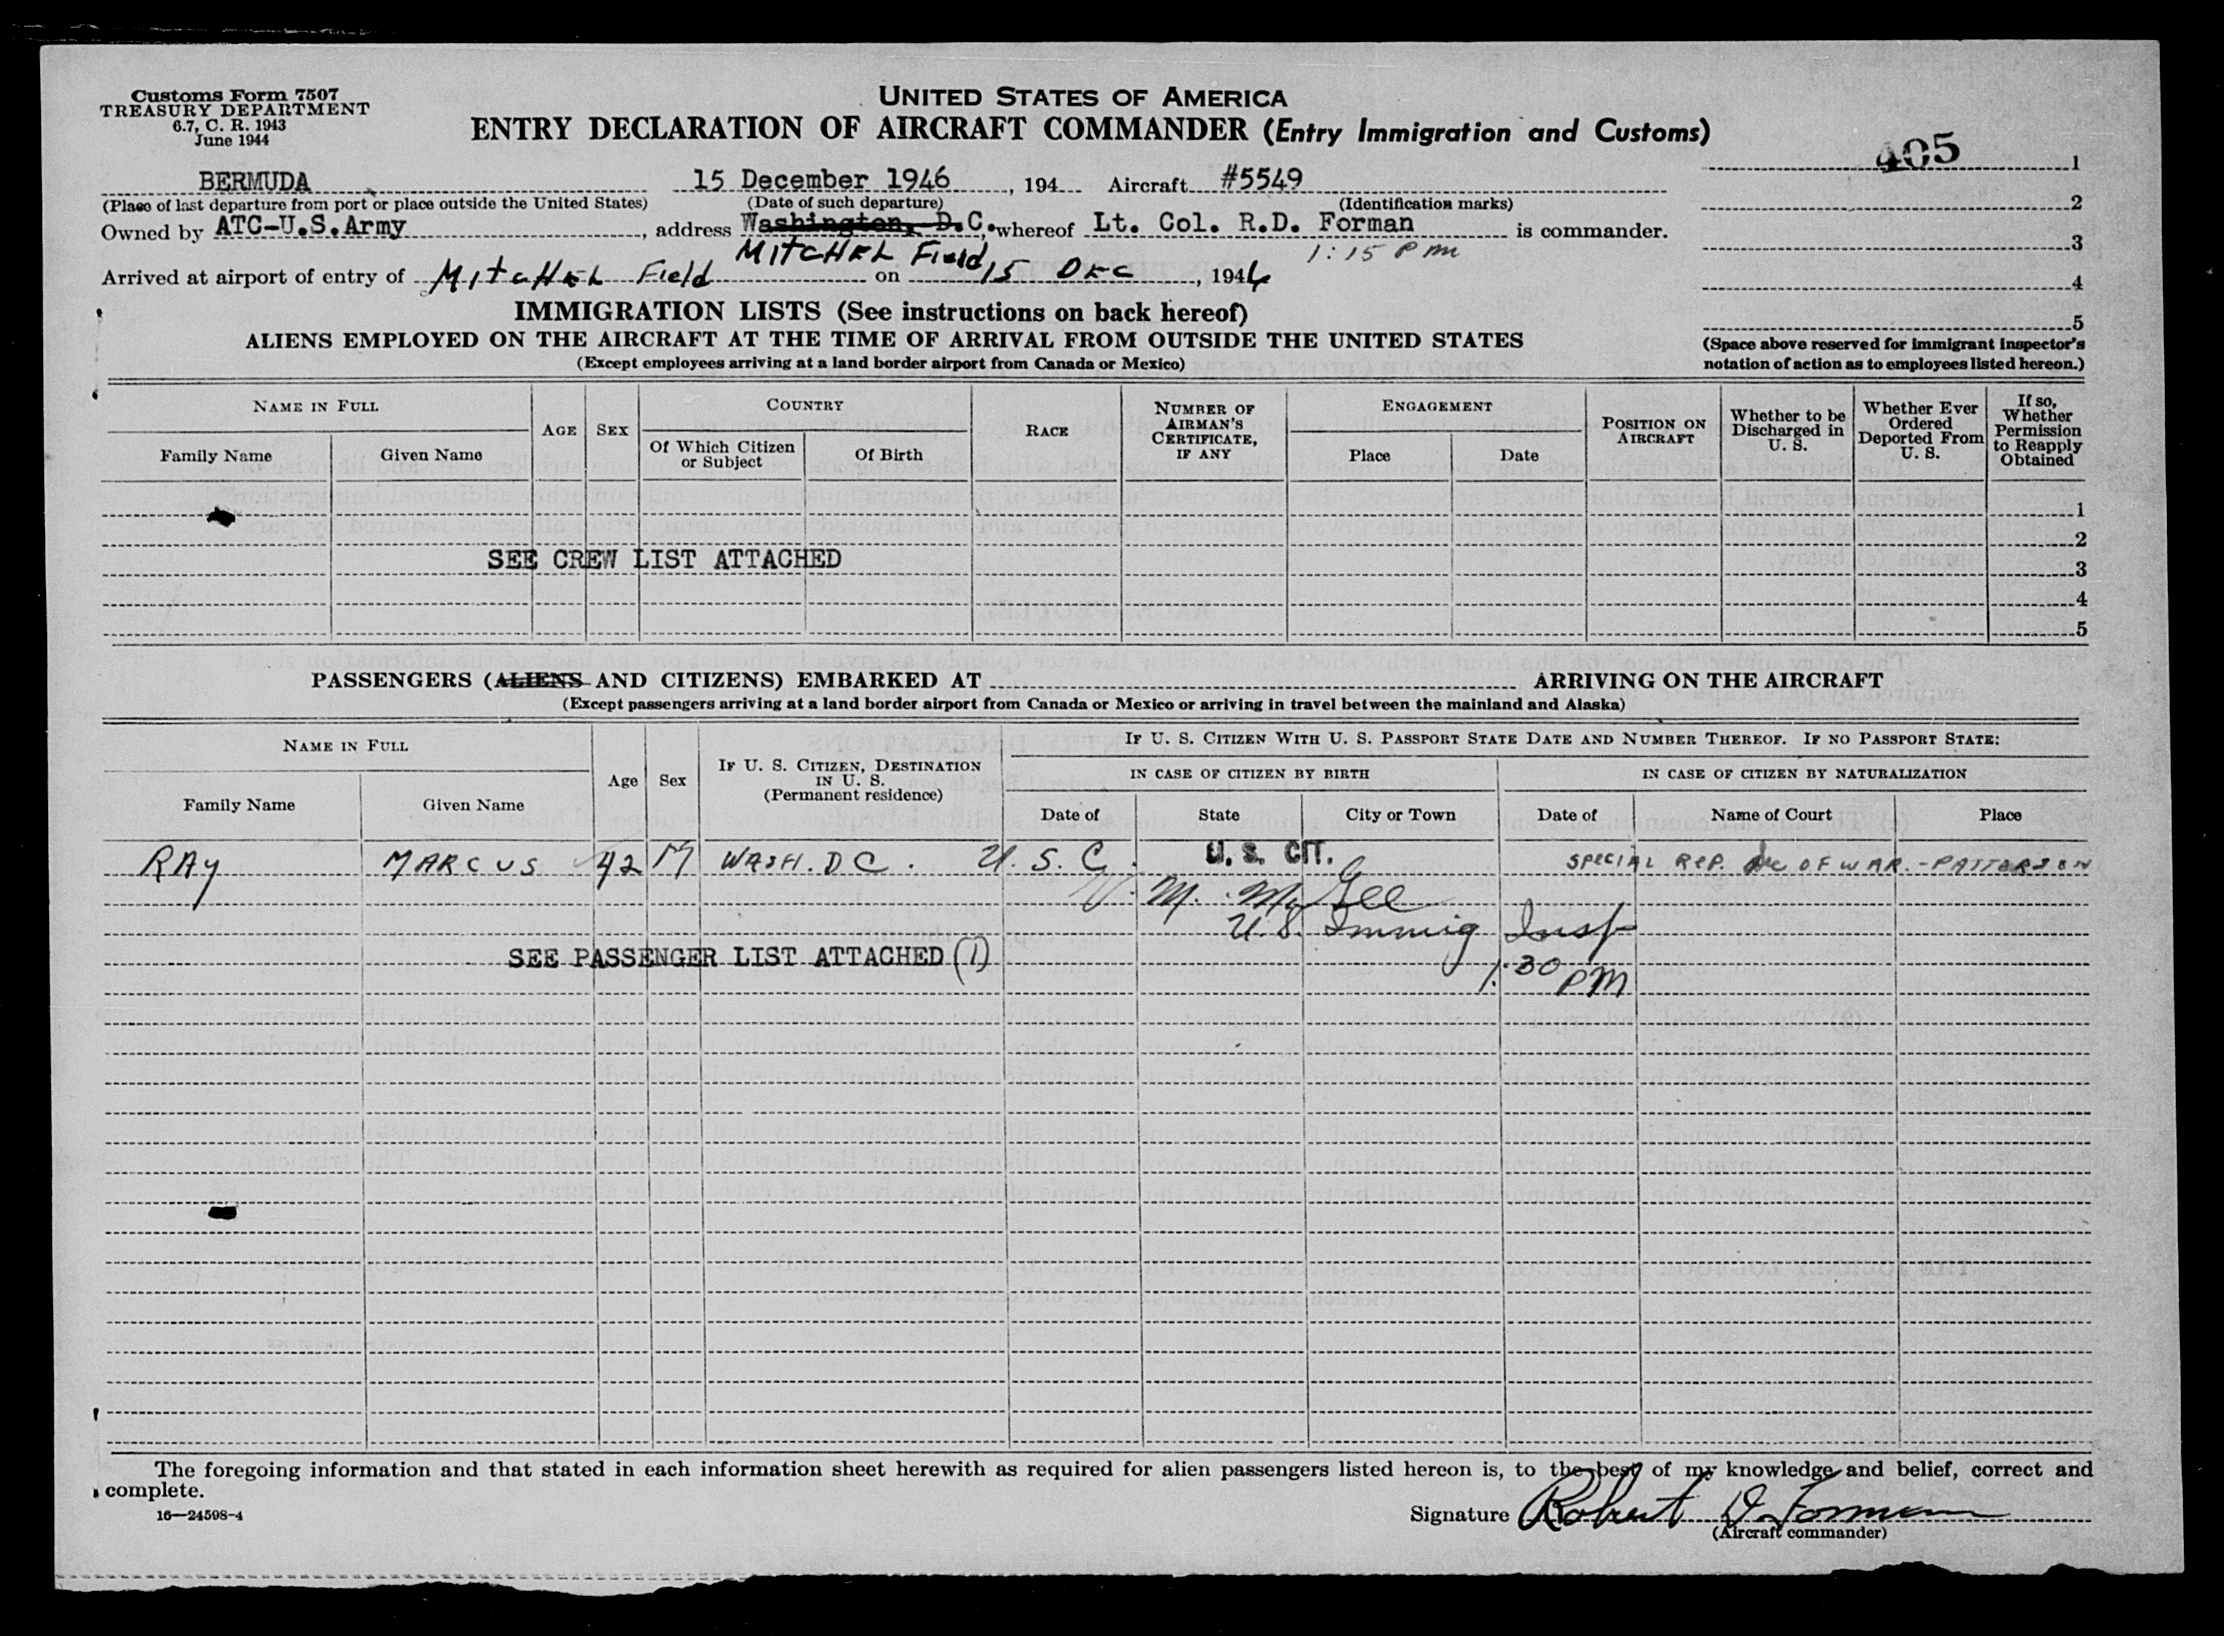 Customs Form 7507
TREASURY DEPARTMENT
6.7, C. R. 1943
June 1944
UNITED STATES OF AMERICA
ENTRY DECLARATION OF AIRCRAFT COMMANDER (Entry Immigration and Customs)
405
1
BERMUDA 15 December 1946, 194 Aircraft #5549
(Place of last departure from port or place outside the United States) (Date of such departure) (Identification marks)
2
Owned by ATC-U.S.Army, address Washington, D.C. whereof Lt. Col. R.D. Forman is commander.
3
MITCHEL Field 1:15 PM
Arrived at airport of entry of MITCHEL Field on 15 DEC, 1946
4
IMMIGRATION LISTS (See instructions on back hereof)
5
ALIENS EMPLOYED ON THE AIRCRAFT AT THE TIME OF ARRIVAL FROM OUTSIDE THE UNITED STATES
(Space above reserved for immigrant inspector's
notation of action as to employees listed hereon.)
(Except employees arriving at a land border airport from Canada or Mexico)
NAME IN FULL
Family Name Given Name
AGE SEX
COUNTRY
Of Which Citizen or Subject
Of Birth
RACE
NUMBER OF AIRMAN'S CERTIFICATE, IF ANY
ENGAGEMENT
Place Date
POSITION ON AIRCRAFT
Whether to be Discharged in U. S.
Whether Ever Ordered Deported From U. S.
If so, Whether Permission to Reapply Obtained
1
2
SEE CREW LIST ATTACHED
3
4
5
PASSENGERS (ALIENS AND CITIZENS) EMBARKED AT ARRIVING ON THE AIRCRAFT
(Except passengers arriving at a land border airport from Canada or Mexico or arriving in travel between the mainland and Alaska)
NAME IN FULL
Family Name Given Name
Age Sex
IF U. S. CITIZEN, DESTINATION IN U. S. (Permanent residence)
IF U. S. CITIZEN WITH U. S. PASSPORT STATE DATE AND NUMBER THEREOF. IF NO PASSPORT STATE:
IN CASE OF CITIZEN BY BIRTH IN CASE OF CITIZEN BY NATURALIZATION
Date of State City or Town Date of Name of Court Place
RAY MARCUS 42 M WASH. DC. U. S. C. U. S. CIT. SPECIAL REP. SEC OF WAR. - PATTERSON
M. McGee
U.S. Immig Insp
SEE PASSENGER LIST ATTACHED (1)
1:30 PM
The foregoing information and that stated in each information sheet herewith as required for alien passengers listed hereon is, to the best of my knowledge and belief, correct and
complete.
16—24598-4
Signature Robert D. Forman
(Aircraft commander)